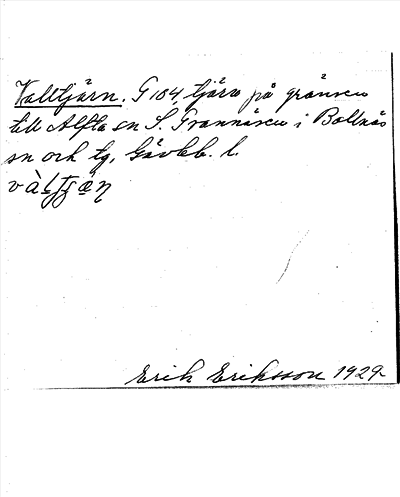 Valltjärn. G 104, tjärn på gränsen
till Alfta sn S. Grannäsen i Bollnäs
sn och tg, Gävleb. l.
Erik Eriksson 1929